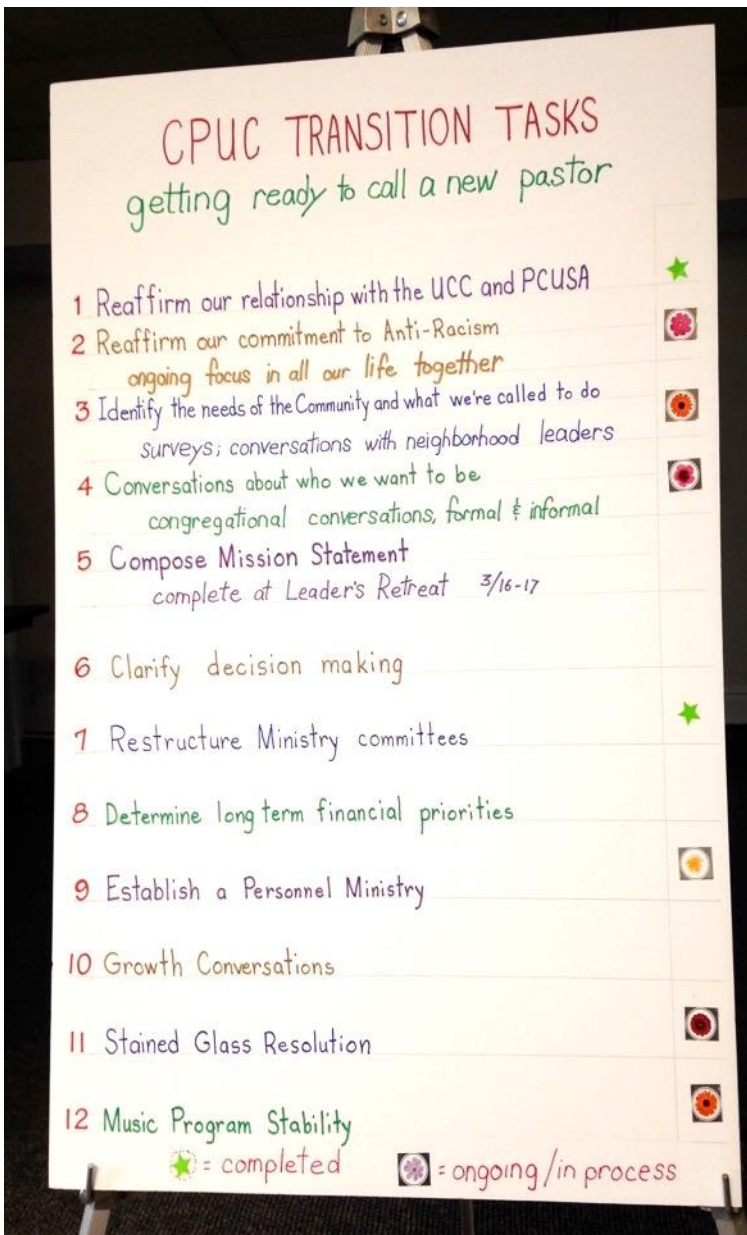 CPUC TRANSITION TASKS
getting ready to call a new pastor
1 Reaffirm our relationship with the UCC and PCUSA
2 Reaffirm our commitment to Anti-Racism
ongoing focus in all our life together
3 Identify the needs of the Community and what we're called to do
surveys; conversations with neighborhood leaders
4 Conversations about who we want to be
congregational conversations, formal & informal
5 Compose Mission Statement
complete at Leader's Retreat 3/16-17
6 Clarify decision making
7 Restructure Ministry committees
8 Determine long term financial priorities
9 Establish a Personnel Ministry
10 Growth Conversations
11 Stained Glass Resolution
12 Music Program Stability
= completed = ongoing/in process